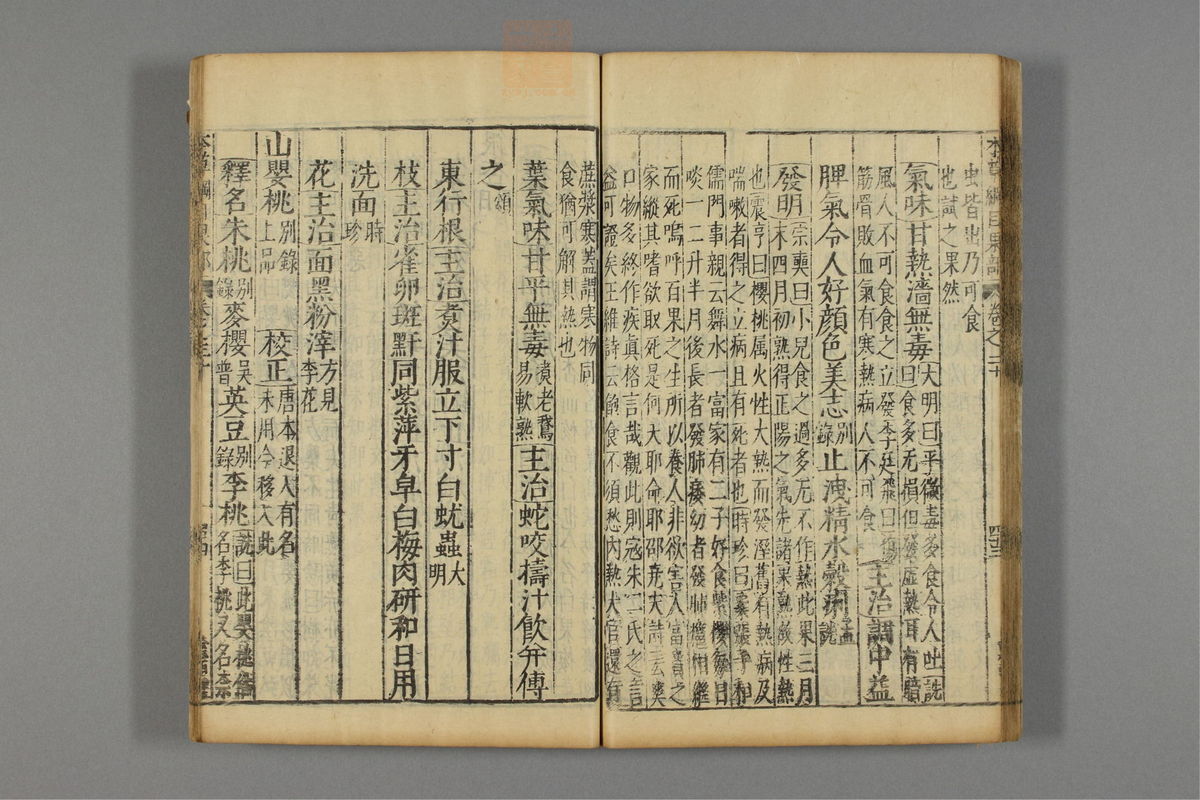 虫皆出乃可食
也試之果然
氣味甘熱濇無毒大明曰平微毒多食令人吐詵
曰食多无損但發虛熱耳有暗
風人不可食食之立發李廷飛曰傷
筋骨敗血氣有寒熱病人不可食
主治調中益
脾氣令人好顏色美志別錄止洩精水穀痢孟詵
發明宗奭曰小兒食之過多无不作熱此果三月
末四月初熟得正陽之氣先諸果熟故性熱
也震亨曰櫻桃属火性大熱而發溼舊有熱病及
喘嗽者得之立病且有死者也時珍曰案張子和
儒門事親云舞水一富家有二子好食紫櫻每日
啖一二升半月後長者發肺痿幼者發肺癰相繼
而死嗚呼百果之生所以養人非欲害人富貴之
家縱其嗜欲取死是何天耶命耶邵尭夫詩云爽
口物多終作疾真格言哉觀此則寇朱二氏之言
益可證矣王維詩云飽食不須愁內熱大官還有
蔗漿寒蓋謂寒物同
食猶可解其熱也
葉氣味甘平無毒煑老鵞
易軟熟主治蛇咬擣汁飲并傅
之頌
東行根主治煑汁服立下寸白蚘蟲大明
枝主治雀卵斑䵟同紫萍牙皁白梅肉研和日用
洗面時珍
花主治面黑粉滓方見
李花
山嬰桃別錄
上品校正唐本退入有名
未用今移入此
釋名朱桃別錄麥櫻吳普英豆別錄李桃詵曰此嬰桃俗
名李桃又名柰